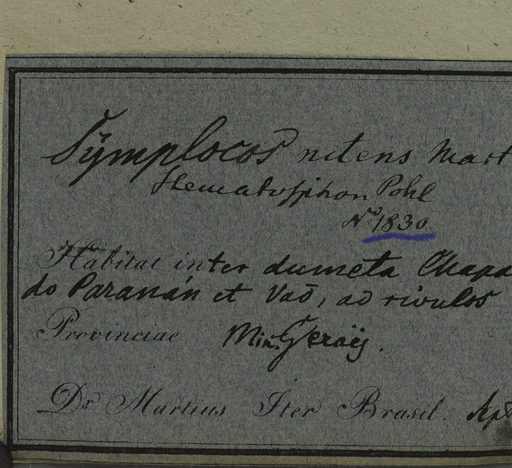 Symplocos nitens Mart
Stematosiphon Pohl
No 1830
Habitat inter dumeta Chapa
do Paranán et Vaõ, ad rivulos
Provinciae Min. Geraës.
Dr Martius Iter Brasil. Apr